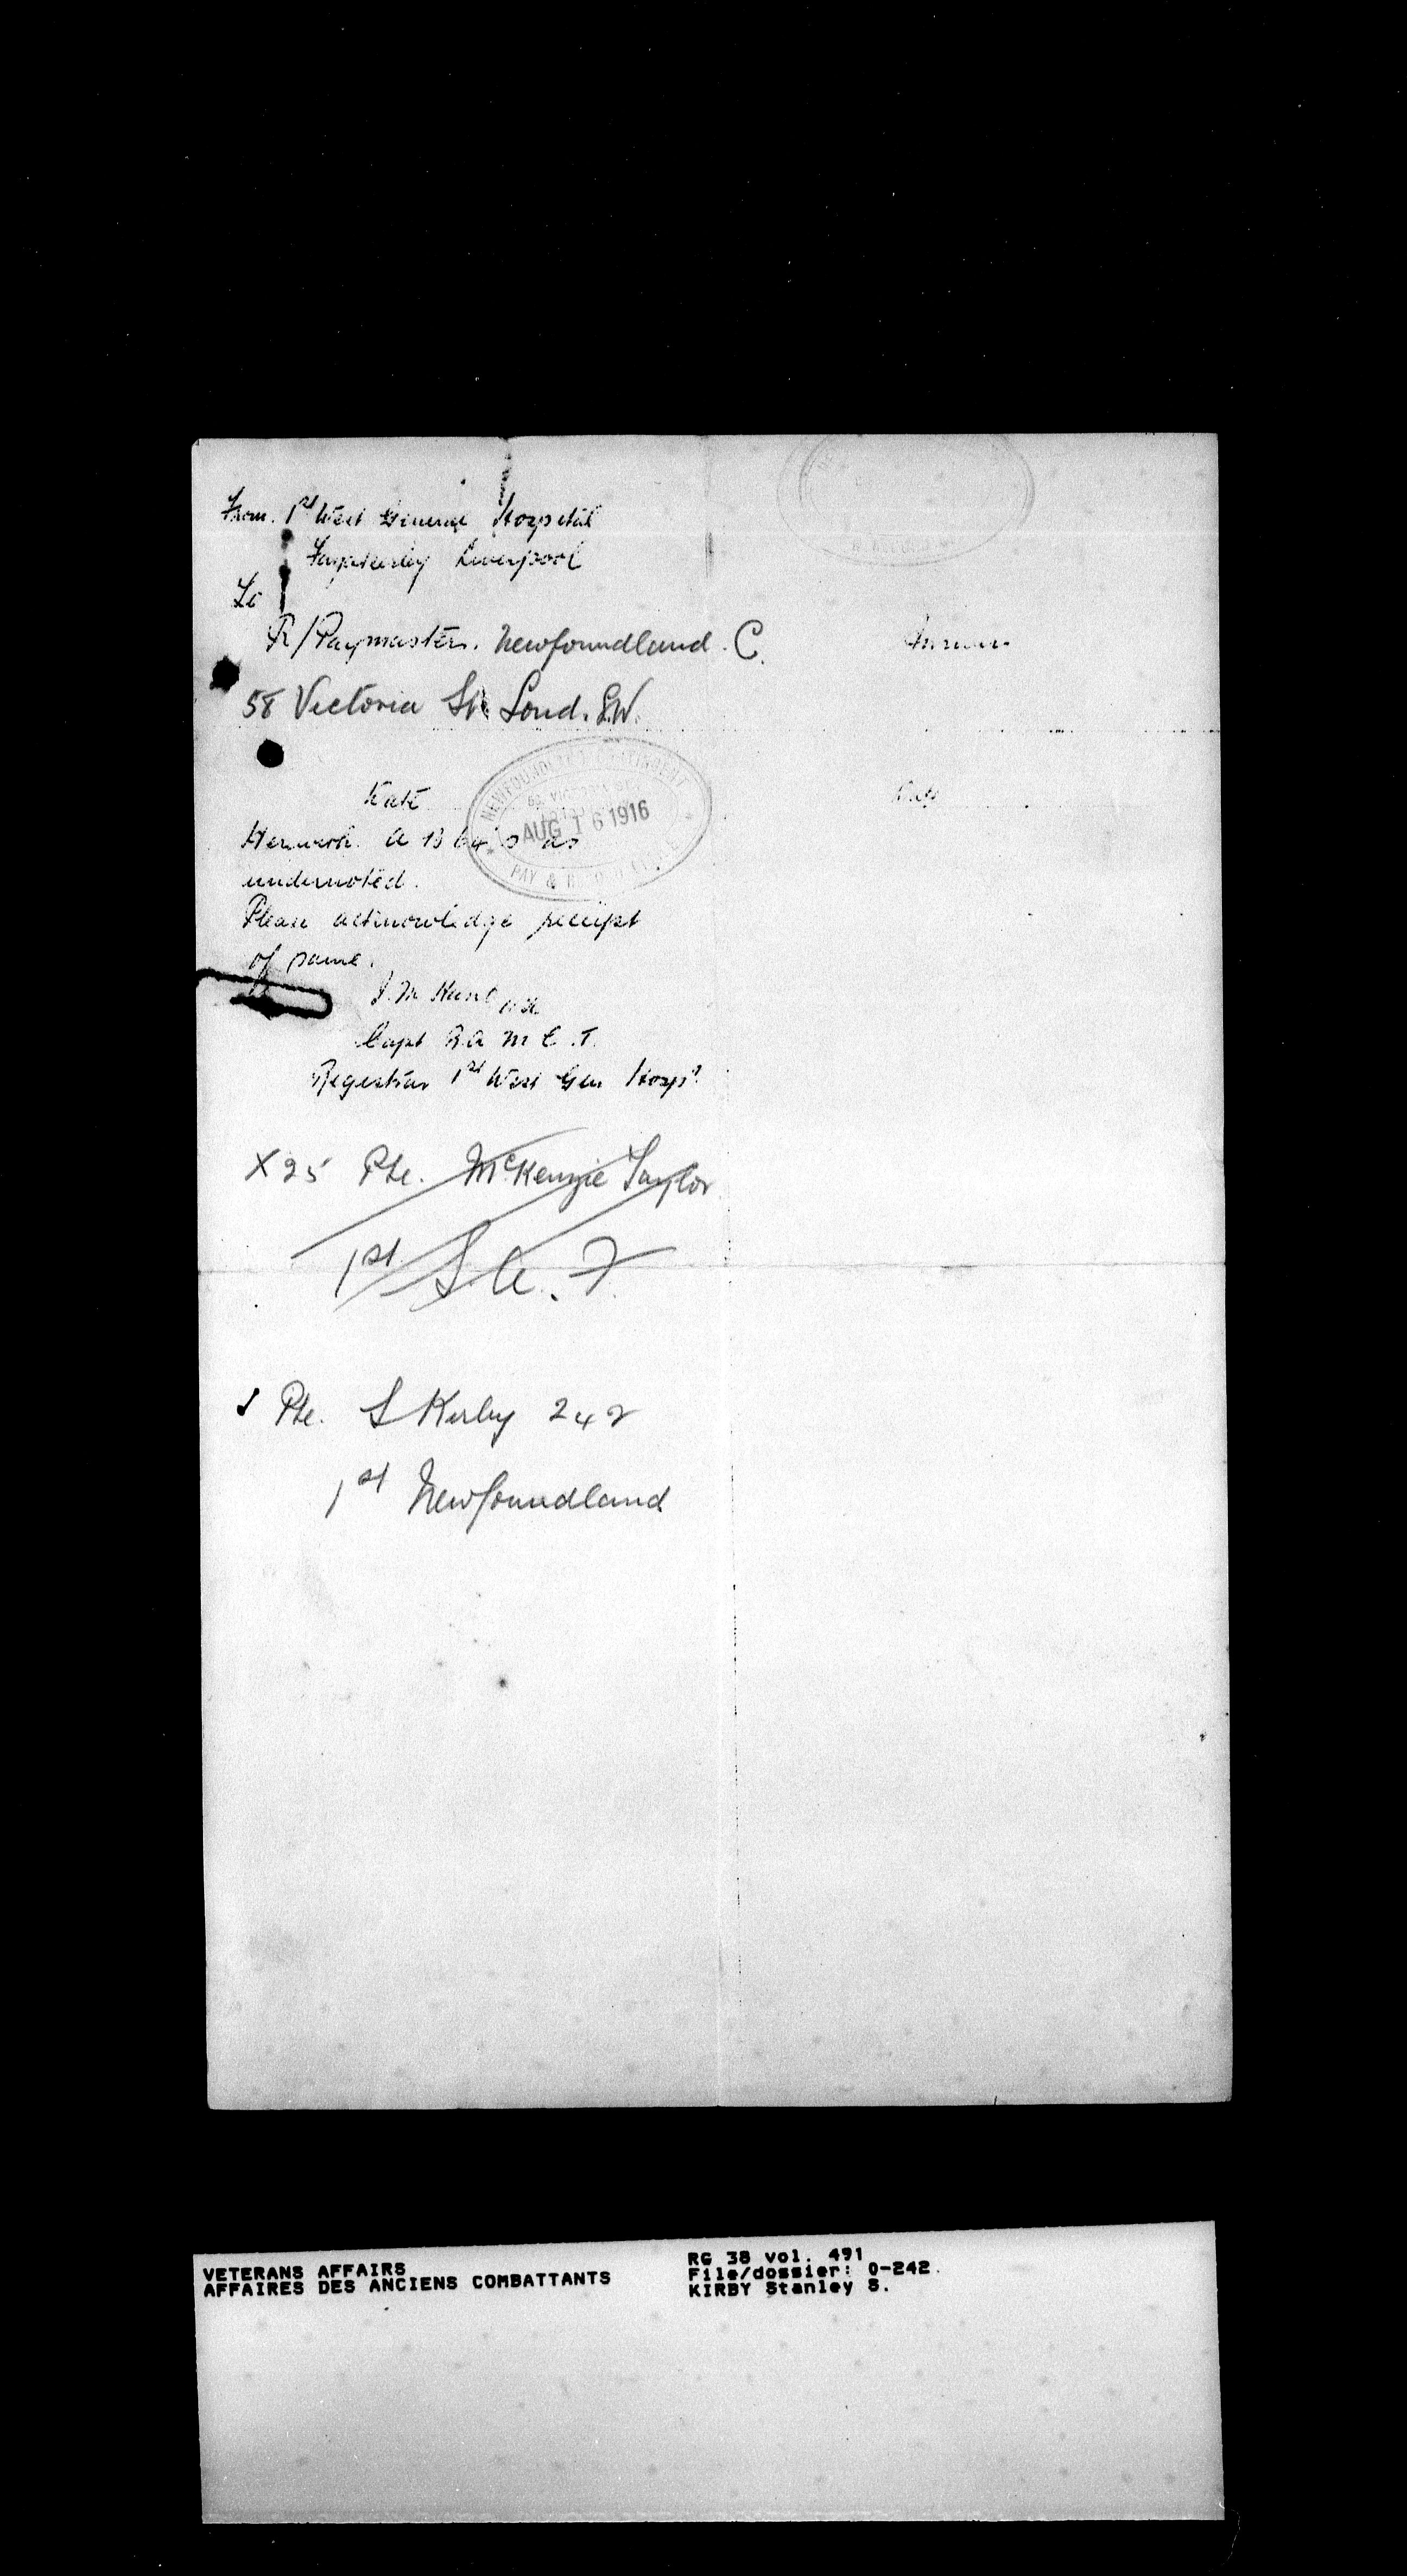 From. 1st West General Hospital
Fazakerley Liverpool
To
R/Paymaster. Newfoundland. C.
Answer
58 Victoria St. Lond. S.W.
Date
Date
NEWFOUNDLAND CONTINGENT
AUG 16 1916
PAY &
Herewith. A B 64's as
undernoted.
Please acknowledge receipt
of same.
Capt R A M C. T.
Registrar 1st West Gen Hospl.
X 25 Pte. McKenzie Taylor
1st S. A. F
Pte. S Kirby 242
1st Newfoundland
VETERANS AFFAIRS
AFFAIRES DES ANCIENS COMBATTANTS
RG 38 vol. 491
File/dossier: 0-242.
KIRBY Stanley S.